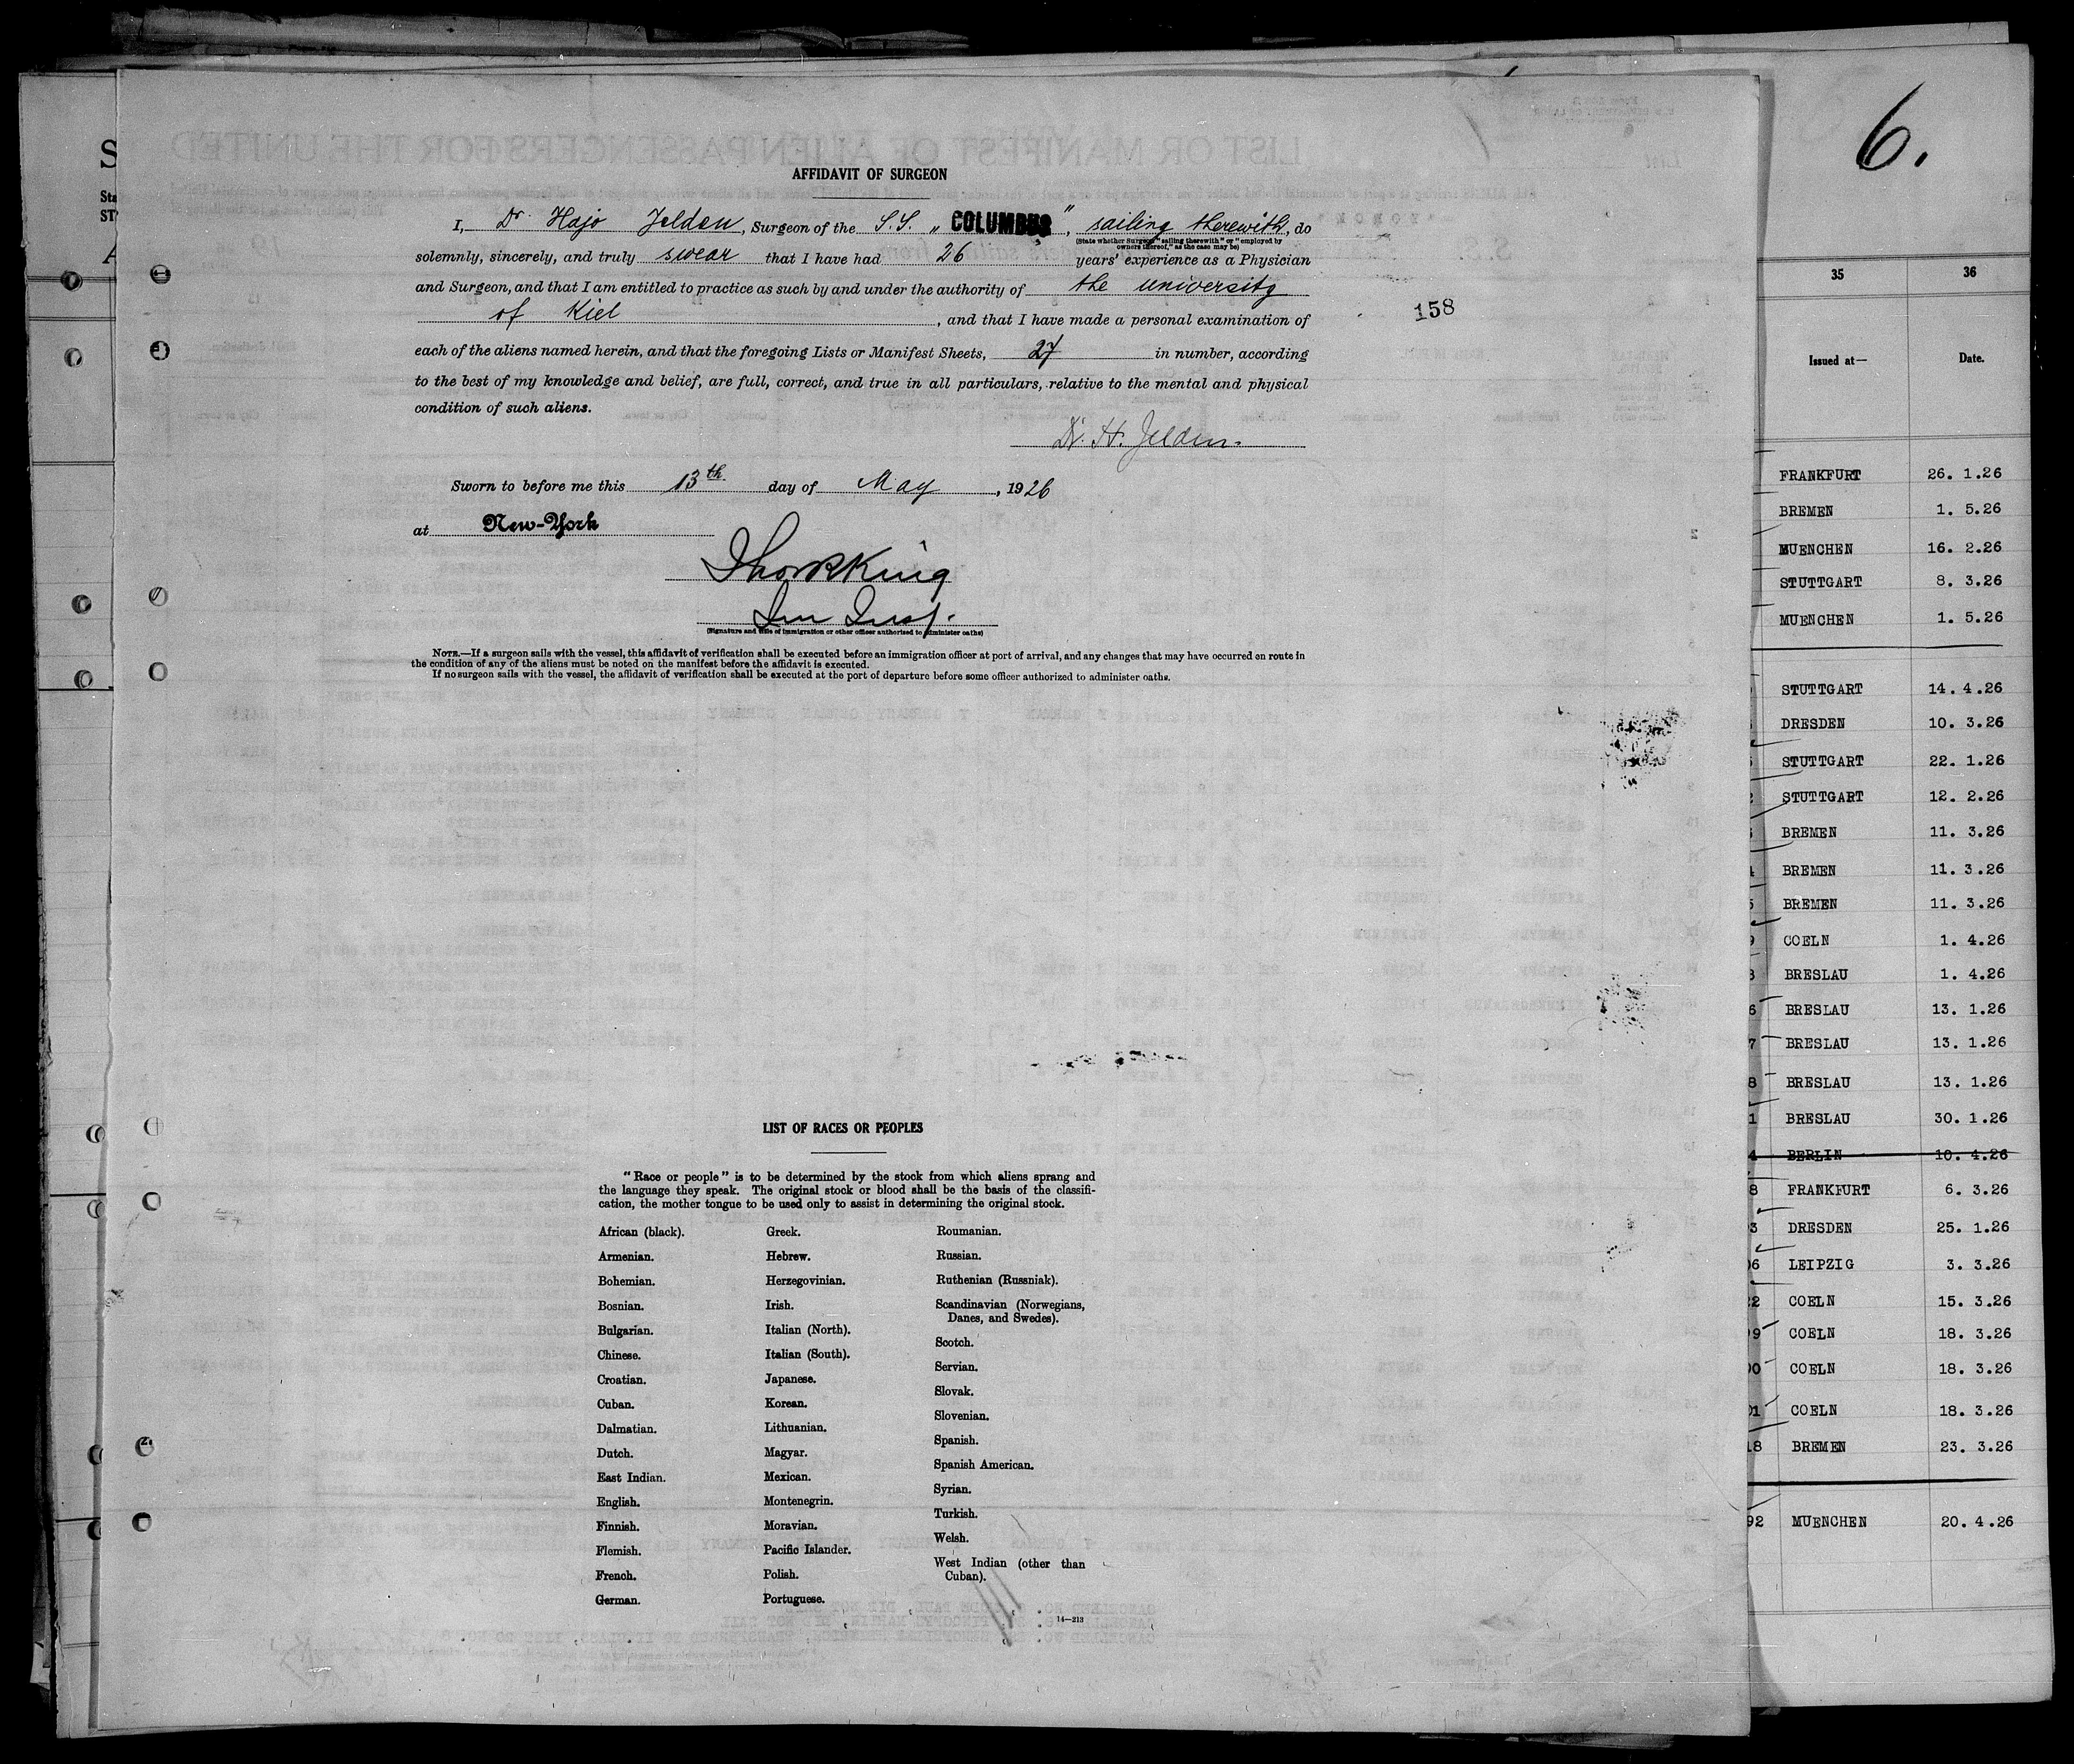 6.
AFFIDAVIT OF SURGEON
I, Dr. Hajo Jelden, Surgeon of the S.S. „COLUMBUS", sailing therewith, do
(State whether Surgeon "sailing therewith" or "employed by
owners thereof," as the case may be)
solemnly, sincerely, and truly swear that I have had 26 years' experience as a Physician
and Surgeon, and that I am entitled to practice as such by and under the authority of the university
of Kiel, and that I have made a personal examination of
158
each of the aliens named herein, and that the foregoing Lists or Manifest Sheets, 27 in number, according
to the best of my knowledge and belief, are full, correct, and true in all particulars, relative to the mental and physical
condition of such aliens.
Dr. H. Jelden.
Sworn to before me this 13th day of May, 1926
at New-York
King
Imm Insp.
(Signature and title of immigration or other officer authorized to administer oaths)
NOTE.—If a surgeon sails with the vessel, this affidavit of verification shall be executed before an immigration officer at port of arrival, and any changes that may have occurred en route in
the condition of any of the aliens must be noted on the manifest before the affidavit is executed.
If no surgeon sails with the vessel, the affidavit of verification shall be executed at the port of departure before some officer authorized to administer oaths.
LIST OF RACES OR PEOPLES
"Race or people" is to be determined by the stock from which aliens sprang and
the language they speak. The original stock or blood shall be the basis of the classifi-
cation, the mother tongue to be used only to assist in determining the original stock.
African (black).
Armenian.
Bohemian.
Bosnian.
Bulgarian.
Chinese.
Croatian.
Cuban.
Dalmatian.
Dutch.
East Indian.
English.
Finnish.
Flemish.
French.
German.
Greek.
Hebrew.
Herzegovinian.
Irish.
Italian (North).
Italian (South).
Japanese.
Korean.
Lithuanian.
Magyar.
Mexican.
Montenegrin.
Moravian.
Pacific Islander.
Polish.
Portuguese.
Roumanian.
Russian.
Ruthenian (Russniak).
Scandinavian (Norwegians,
Danes, and Swedes).
Scotch.
Servian.
Slovak.
Slovenian.
Spanish.
Spanish American.
Syrian.
Turkish.
Welsh.
West Indian (other than
Cuban).
14—213
35 36
Issued at— Date.
FRANKFURT 26. 1.26
BREMEN 1. 5.26
MUENCHEN 16. 2.26
STUTTGART 8. 3.26
MUENCHEN 1. 5.26
STUTTGART 14. 4.26
DRESDEN 10. 3.26
STUTTGART 22. 1.26
STUTTGART 12. 2.26
BREMEN 11. 3.26
BREMEN 11. 3.26
BREMEN 11. 3.26
COELN 1. 4.26
BRESLAU 1. 4.26
6 BRESLAU 13. 1.26
7 BRESLAU 13. 1.26
8 BRESLAU 13. 1.26
1 BRESLAU 30. 1.26
4 BERLIN 10. 4.26
8 FRANKFURT 6. 3.26
3 DRESDEN 25. 1.26
06 LEIPZIG 3. 3.26
22 COELN 15. 3.26
99 COELN 18. 3.26
00 COELN 18. 3.26
01 COELN 18. 3.26
18 BREMEN 23. 3.26
92 MUENCHEN 20. 4.26